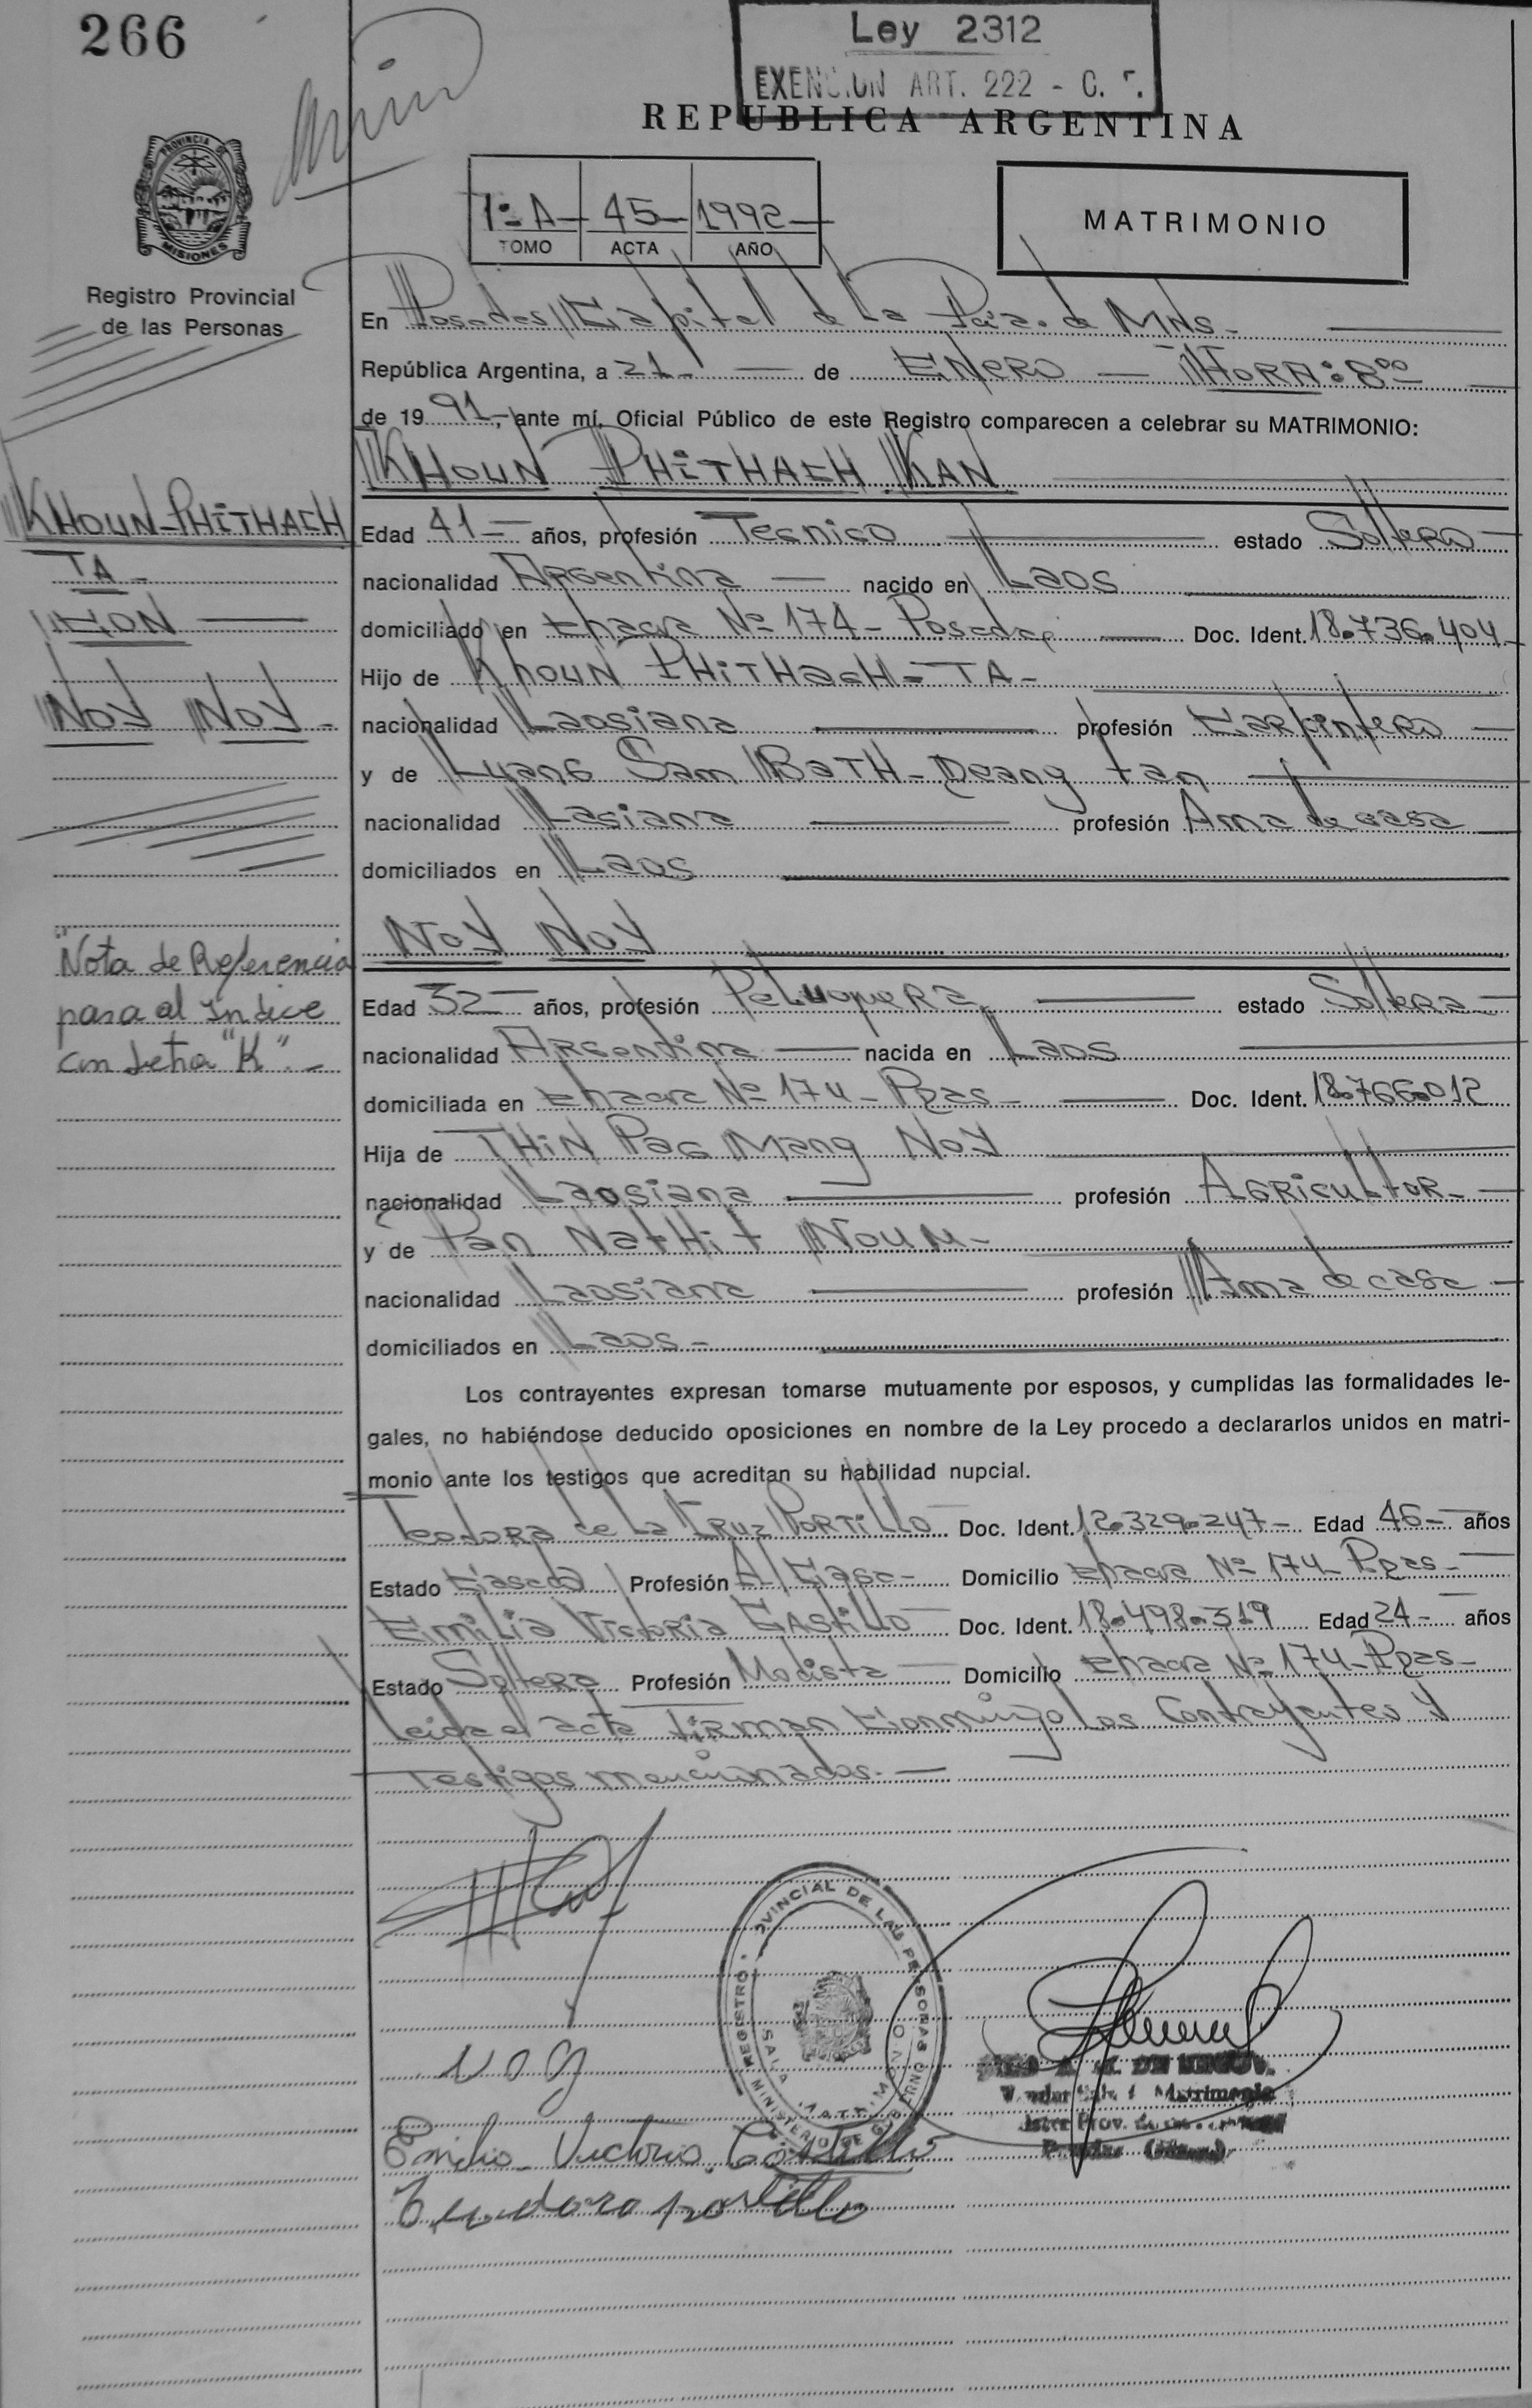 266
Ley 2312
EXENCION ART. 222 - C. F.
REPUBLICA ARGENTINA
PROVINCIA DE
MISIONES
Registro Provincial
de las Personas
1º A - 45 - 1992 -
TOMO ACTA AÑO
MATRIMONIO
En Posadas, Capital de la Pcia. de Mns -
República Argentina, a 21 - de ENERO - HORA: 8⁰⁰ -
de 19 91 -, ante mí, Oficial Público de este Registro comparecen a celebrar su MATRIMONIO:
KHOUN PHITHACH KAN
KHOUN-PHITHACH
TA -
CON
NOY NOY -
Edad 41 - años, profesión Tecnico estado Soltero -
nacionalidad Argentina - nacido en Laos
domiciliado en Chacra Nº 174 - Posadas Doc. Ident. 18.736.404 -
Hijo de KhOUN PHITHacH - TA -
nacionalidad Laosiana profesión Carpintero -
y de Luang Sam BaTH - Deang tan
nacionalidad Lasiana profesión Ama de casa
domiciliados en Laos
NOY NOY
"Nota de Referencia
para al Indice
con Letra "K". -
Edad 32 - años, profesión Peluquera estado Soltera -
nacionalidad Argentina - nacida en Laos
domiciliada en Chacra Nº 174 - Pdas - Doc. Ident. 18.766.012
Hija de THIN Pac Mang Noy
nacionalidad Laosiana profesión Agricultor -
y de Pan NatHit NOUM -
nacionalidad Laosiana profesión Ama de casa -
domiciliados en Laos -
Los contrayentes expresan tomarse mutuamente por esposos, y cumplidas las formalidades le-
gales, no habiéndose deducido oposiciones en nombre de la Ley procedo a declararlos unidos en matri-
monio ante los testigos que acreditan su habilidad nupcial.
Teodora de La Cruz Portillo Doc. Ident. 12.329.247 - Edad 46 - años
Estado Casada Profesión A/Casa - Domicilio Chacra Nº 174 Pdas -
Emilia Victoria Castillo Doc. Ident. 18.498.319 Edad 24 - años
Estado Soltera Profesión Modista Domicilio Chacra Nº 174 - Pdas -
Leida el acta firman conmigo los Contrayentes y
Testigos mencionados. -
REGISTRO PROVINCIAL DE LAS PERSONAS
MINISTERIO DE GOBIERNO
noy
Matrimonio
Emilia Victoria Castillo
Teodora portillo